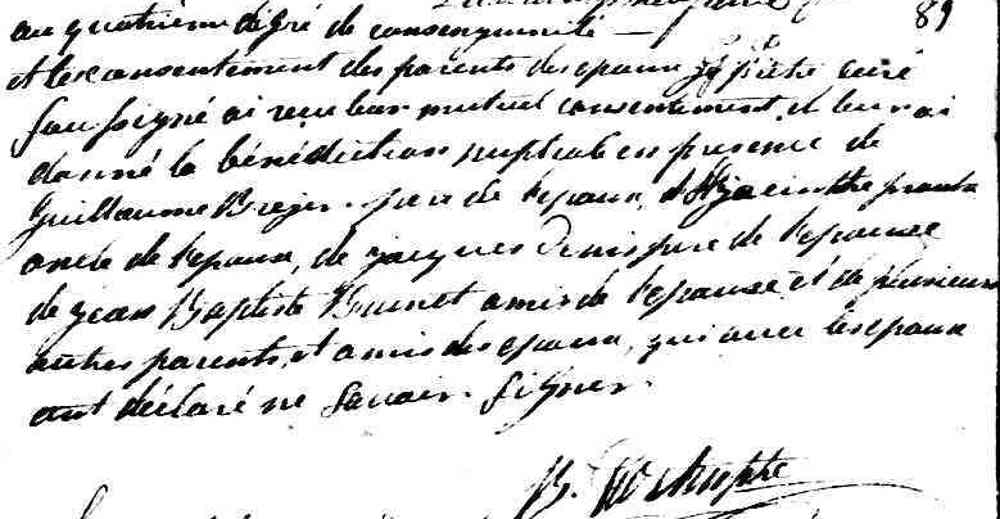 89
au quatrième dégré de consanguinité —
et le consentement des parents des epoux je prêtre curé
soussigné ai reçu leur mutuel consentement, et leur ai
donné la bénédiction nuptiale en presence de
Guillaume Breger père de l'epoux, d'Hyacinthe
oncle de l'epoux, de jacques Denis père de l'epouse
de jean Baptiste Brunet amis de l'epouse et de plusieurs
autres parents, et amis des epoux, qui avec les epoux
ont déclaré ne savoir signer.
B.